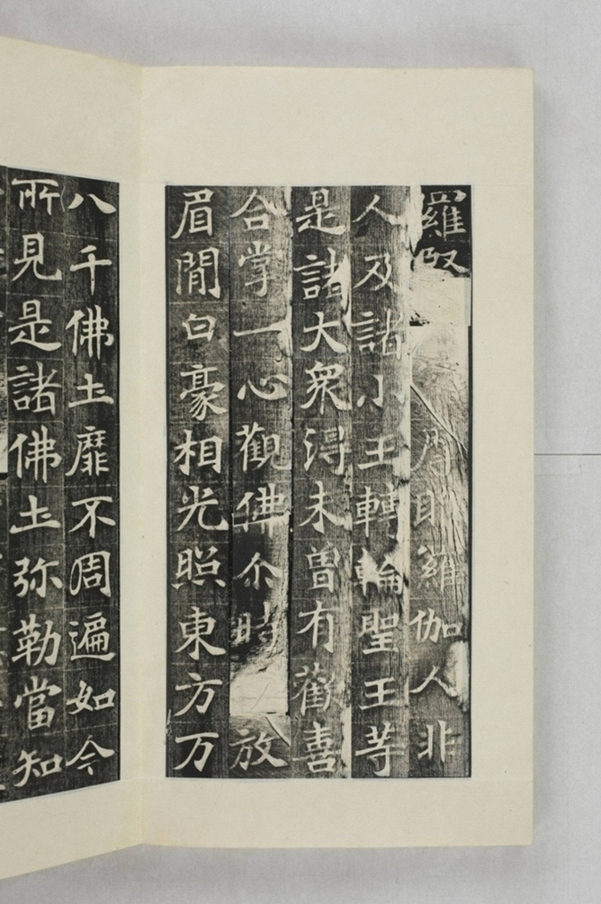 羅 羅伽人非
人及諸小王轉輪聖王等
是諸大衆得未曾有歡喜
合掌一心觀佛尒時 放
眉間白豪相光照東方万
八千佛土靡不周遍如今
所見是諸佛土弥勒當知